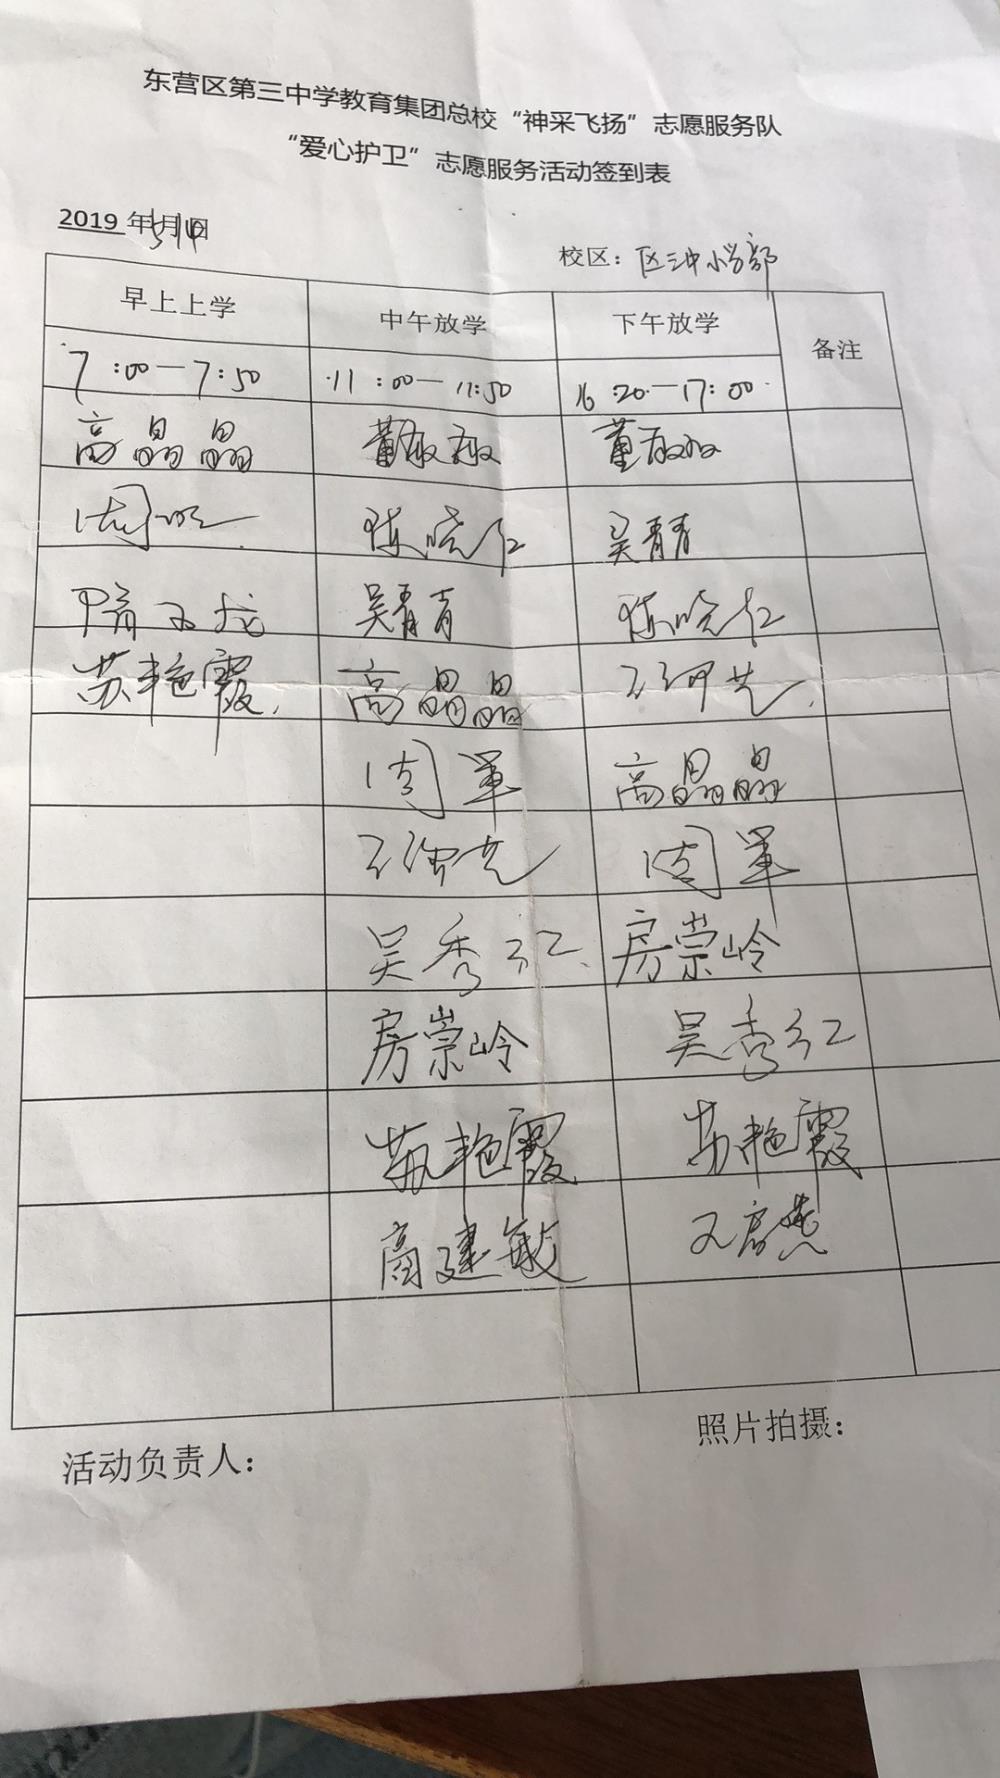 东营区第三中学教育集团总校“神采飞扬”志愿服务队
“爱心护卫”志愿服务活动签到表
2019 年 5 月 日
校区：区三中小学部
早上上学 中午放学 下午放学 备注
7:00—7:50 11:00—11:50 16:20—17:00
高晶晶 董敏敏 董敏敏
周 陈晓红 吴青青
吴青青 陈晓红
苏艳霞 高晶晶
周军 高晶晶
周军
吴秀红 房崇岭
房崇岭 吴秀红
苏艳霞 苏艳霞
高建敏
活动负责人：
照片拍摄：